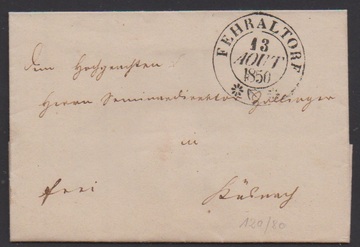 FEHRALTORF
13
AOUT
1850
Dem Hochgeachten
Herrn Seminardirektor Zollinger
in
frei Küsnach
120/80